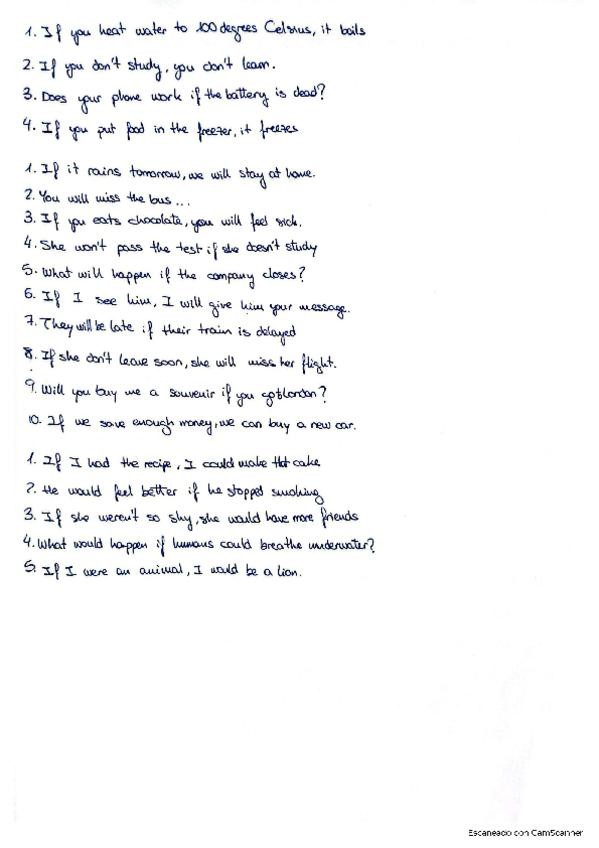 1. If you heat water to 100 degrees Celsius, it boils
2. If you don't study, you don't learn.
3. Does your phone work if the battery is dead?
4. If you put food in the freezer, it freezes
1. If it rains tomorrow, we will stay at home.
2. You will miss the bus...
3. If you eats chocolate, you will feel sick.
4. She won't pass the test if she doesn't study
5. What will happen if the company closes?
6. If I see him, I will give him your message.
7. They will be late if their train is delayed
8. If she don't leave soon, she will miss her flight.
9. Will you buy me a souvenir if you London?
10. If we save enough money, we can buy a new car.
1. If I had the recipe, I could make that cake
2. He would feel better if he stopped smoking
3. If she weren't so shy, she would have more friends
4. What would happen if humans could breathe underwater?
5. If I were an animal, I would be a lion.
Escaneado con CamScanner